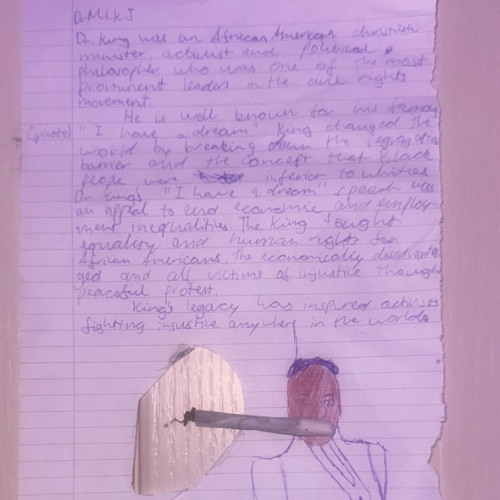 DR MLK J
Dr. King was an African American christian
minister, activist and political
philosopher who was one of the most
prominent leaders in the civil rights
movement.
He is well known for his famous
(quote) "I have a dream" King changed the
world by breaking down the segregation
barrier and the concept that Black
people were inferior to whites
Dr. King's "I have a dream" speech was
an appeal to end economic and employ-
ment inequalities. The King sought
equality and human rights for
African Americans, the economically disadvanta
ged and all victims of injustice through
peaceful protest.
King's legacy has inspired activists
fighting injustice anywhere in the world.